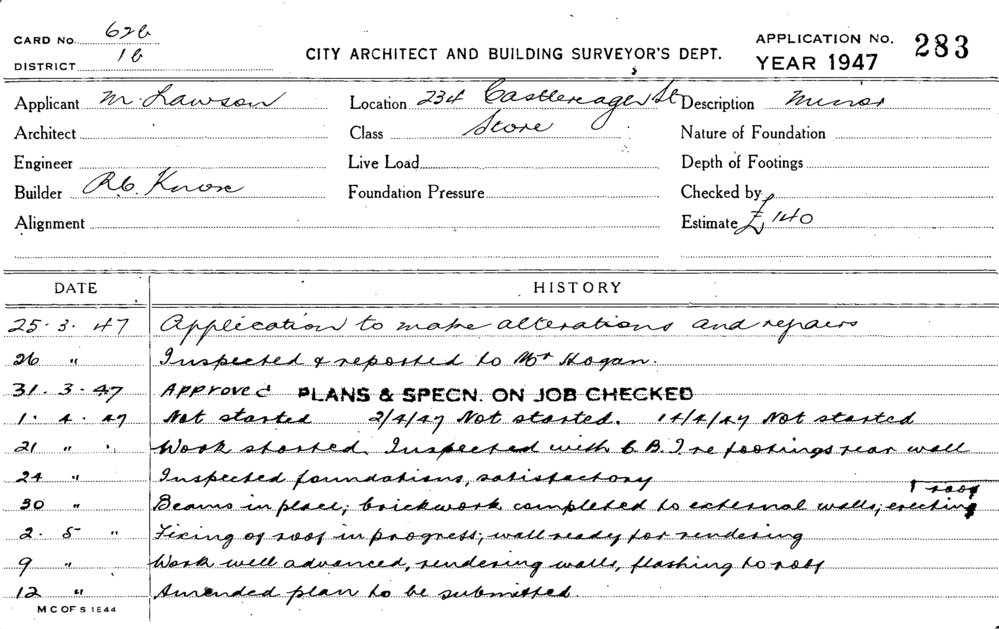 CARD No. 626
DISTRICT 16
CITY ARCHITECT AND BUILDING SURVEYOR'S DEPT.
APPLICATION No. 283
YEAR 1947
Applicant M. Lawson Location 234 Castlereagh St Description Minor
Architect Class Store Nature of Foundation
Engineer Live Load Depth of Footings
Builder R.C. Knox Foundation Pressure Checked by
Alignment Estimate £140
DATE HISTORY
25.3.47 Application to make alterations and repairs
26 " Inspected & reported to Mr Hogan.
31.3.47 Approved PLANS & SPECN. ON JOB CHECKED
1.4.47 Not started 2/4/47 Not started. 14/4/47 Not started
21 " " Work started. Inspected with C.B.I re footings rear wall
24 " Inspected foundations, satisfactory
30 " Beams in place; brickwork completed to external walls; erecting roof
2.5 " Fixing of roof in progress; wall ready for rendering
9 " Work well advanced, rendering walls, flashing to roof
12 " Amended plan to be submitted.
M C OF S 1E44